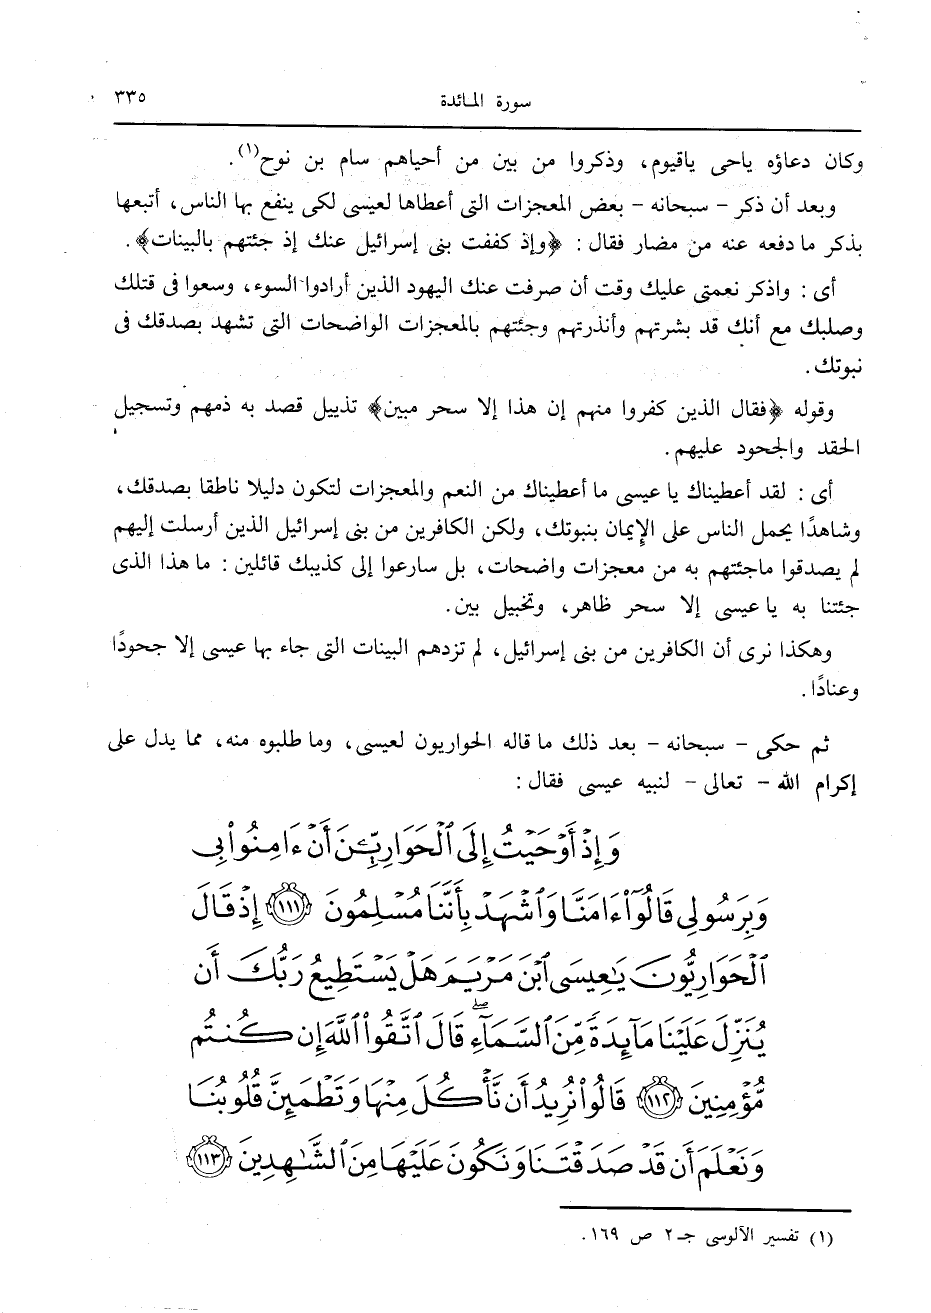 سورة المائدة ٣٣٥
وكان دعاؤه ياحى ياقيوم، وذكروا من بين من أحياهم سام بن نوح(١).
وبعد أن ذكر - سبحانه - بعض المعجزات التى أعطاها لعيسى لكى ينفع بها الناس، أتبعها
بذكر ما دفعه عنه من مضار فقال : ﴿وإذ كففت بنى إسرائيل عنك إذ جئتهم بالبينات﴾.
أى : واذكر نعمتى عليك وقت أن صرفت عنك اليهود الذين أرادوا السوء، وسعوا فى قتلك
وصلبك مع أنك قد بشرتهم وأنذرتهم وجئتهم بالمعجزات الواضحات التى تشهد بصدقك فى
نبوتك.
وقوله ﴿فقال الذين كفروا منهم إن هذا إلا سحر مبين﴾ تذييل قصد به ذمهم وتسجيل
الحقد والجحود عليهم.
أى : لقد أعطيناك يا عيسى ما أعطيناك من النعم والمعجزات لتكون دليلا ناطقا بصدقك،
وشاهدًا يحمل الناس على الإيمان بنبوتك، ولكن الكافرين من بنى إسرائيل الذين أرسلت إليهم
لم يصدقوا ماجئتهم به من معجزات واضحات، بل سارعوا إلى كذيبك قائلين : ما هذا الذى
جئتنا به يا عيسى إلا سحر ظاهر، وتخييل بين.
وهكذا نرى أن الكافرين من بنى إسرائيل، لم تزدهم البينات التى جاء بها عيسى إلا جحودًا
وعنادًا.
ثم حكى - سبحانه - بعد ذلك ما قاله الحواريون لعيسى، وما طلبوه منه، مما يدل على
إكرام الله - تعالى - لنبيه عيسى فقال :
وَإِذْ أَوْحَيْتُ إِلَى ٱلْحَوَارِيِّـۧنَ أَنْ ءَامِنُوا۟ بِى
وَبِرَسُولِى قَالُوٓا۟ ءَامَنَّا وَٱشْهَدْ بِأَنَّنَا مُسْلِمُونَ ١١١ إِذْ قَالَ
ٱلْحَوَارِيُّونَ يَـٰعِيسَى ٱبْنَ مَرْيَمَ هَلْ يَسْتَطِيعُ رَبُّكَ أَن
يُنَزِّلَ عَلَيْنَا مَآئِدَةً مِّنَ ٱلسَّمَآءِ ۖ قَالَ ٱتَّقُوا۟ ٱللَّهَ إِن كُنتُم
مُّؤْمِنِينَ ١١٢ قَالُوا۟ نُرِيدُ أَن نَّأْكُلَ مِنْهَا وَتَطْمَئِنَّ قُلُوبُنَا
وَنَعْلَمَ أَن قَدْ صَدَقْتَنَا وَنَكُونَ عَلَيْهَا مِنَ ٱلشَّـٰهِدِينَ ١١٣
(١) تفسير الآلوسى جـ٢ ص ١٦٩.